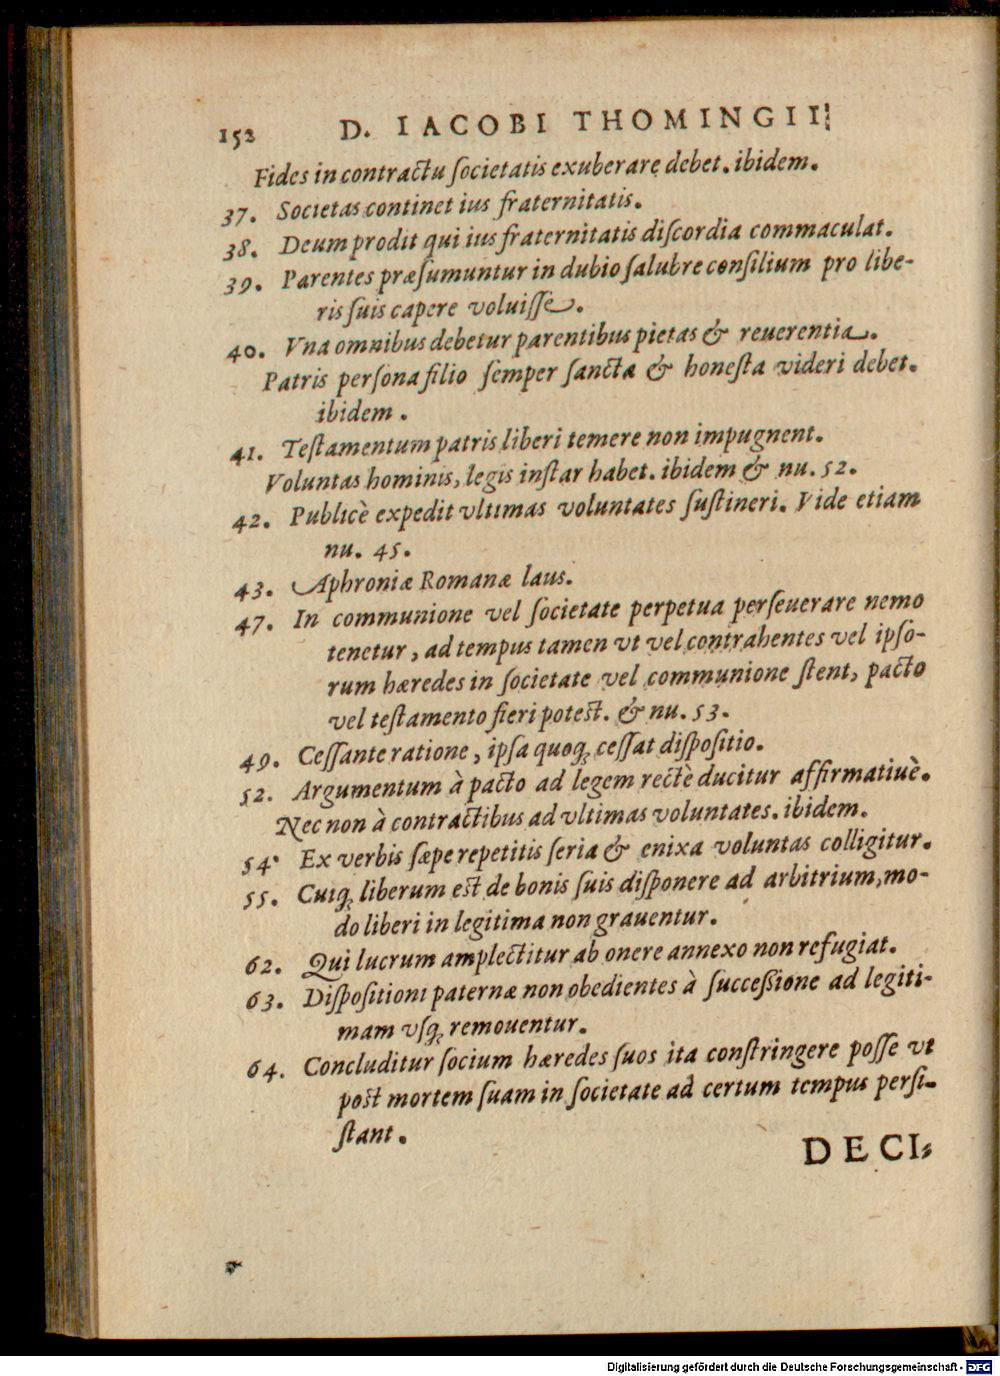 152 D. IACOBI THOMINGII
Fides in contractu ſocietatis exuberare debet. ibidem.
37. Societas continet ius fraternitatis.
38. Deum prodit qui ius fraternitatis diſcordia commaculat.
39. Parentes præſumuntur in dubio ſalubre conſilium pro libe-
ris ſuis capere voluiſſe.
40. Vna omnibus debetur parentibus pietas & reuerentia.
Patris perſona filio ſemper ſancta & honeſta videri debet.
ibidem.
41. Teſtamentum patris liberi temere non impugnent.
Voluntas hominis, legis inſtar habet. ibidem & nu. 52.
42. Publicè expedit vltimas voluntates ſuſtineri. Vide etiam
nu. 45.
43. Aphroniæ Romanæ laus.
47. In communione vel ſocietate perpetua perſeuerare nemo
tenetur, ad tempus tamen vt vel contrahentes vel ipſo-
rum hæredes in ſocietate vel communione ſtent, pacto
vel teſtamento fieri poteſt. & nu. 53.
49. Ceſſante ratione, ipſa quoq; ceſſat diſpoſitio.
52. Argumentum à pacto ad legem rectè ducitur affirmatiuè.
Nec non à contractibus ad vltimas voluntates. ibidem.
54. Ex verbis ſæpe repetitis ſeria & enixa voluntas colligitur.
55. Cuiq; liberum eſt de bonis ſuis diſponere ad arbitrium, mo-
do liberi in legitima non grauentur.
62. Qui lucrum amplectitur ab onere annexo non refugiat.
63. Diſpoſitioni paternæ non obedientes à ſucceſſione ad legiti-
mam vſq; remouentur.
64. Concluditur ſocium hæredes ſuos ita conſtringere poſſe vt
poſt mortem ſuam in ſocietate ad certum tempus perſi-
ſtant.
DECI-
Digitalisierung gefördert durch die Deutsche Forschungsgemeinschaft - DFG